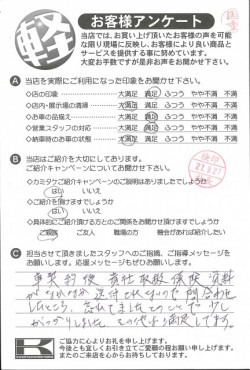 軽
お客様アンケート
当店では、お買い上げ頂いたお客様の声を可能
な限り現場に反映し、お客様により良い商品と
サービスを提供する事に努めています。
大変お手数ですが是非お声をお聞かせ下さい。
A 当店を実際にご利用になった印象をお聞かせ下さい。
◇店の印象 大満足 満足 ふつう やや不満 不満
◇店内・展示場の清掃 大満足 満足 ふつう やや不満 不満
◇お車の品揃え 大満足 満足 ふつう やや不満 不満
◇営業スタッフの対応 大満足 満足 ふつう やや不満 不満
◇納車時のお車の状態 大満足 満足 ふつう やや不満 不満
B 当店はご紹介を大切にしております。
ご紹介キャンペーンについてお聞かせ下さい。
◇カミタケご紹介キャンペーンのご説明はありましたでしょうか
はい いいえ
◇ご紹介を頂けますでしょうか
はい いいえ
◇具体的にご紹介頂ける方とのご関係をお聞かせ頂けますでしょうか
ご親戚 ご友人 職場の方 機会があれば紹介したい
C 担当させて頂きましたスタッフへのご指摘、ご指導メッセージを
お願いします。応援メッセージもぜひお願いします。
車契約後 弊社取扱 保険 資料
がなかなか送付されなかった 問合わせ
したところ、忘れてましたとのことで、少し
がっかりしました
K
ご協力に心よりお礼を申し上げます。
今後とも宜しくお引き立てご愛顧の程お願い申し上げます。
またのご来店を心からお待ちしております。